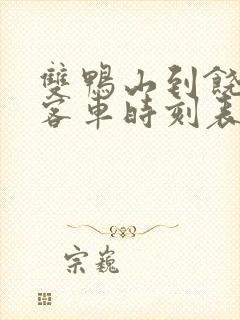 雙鴨山到饒
客車時刻表
宗巍